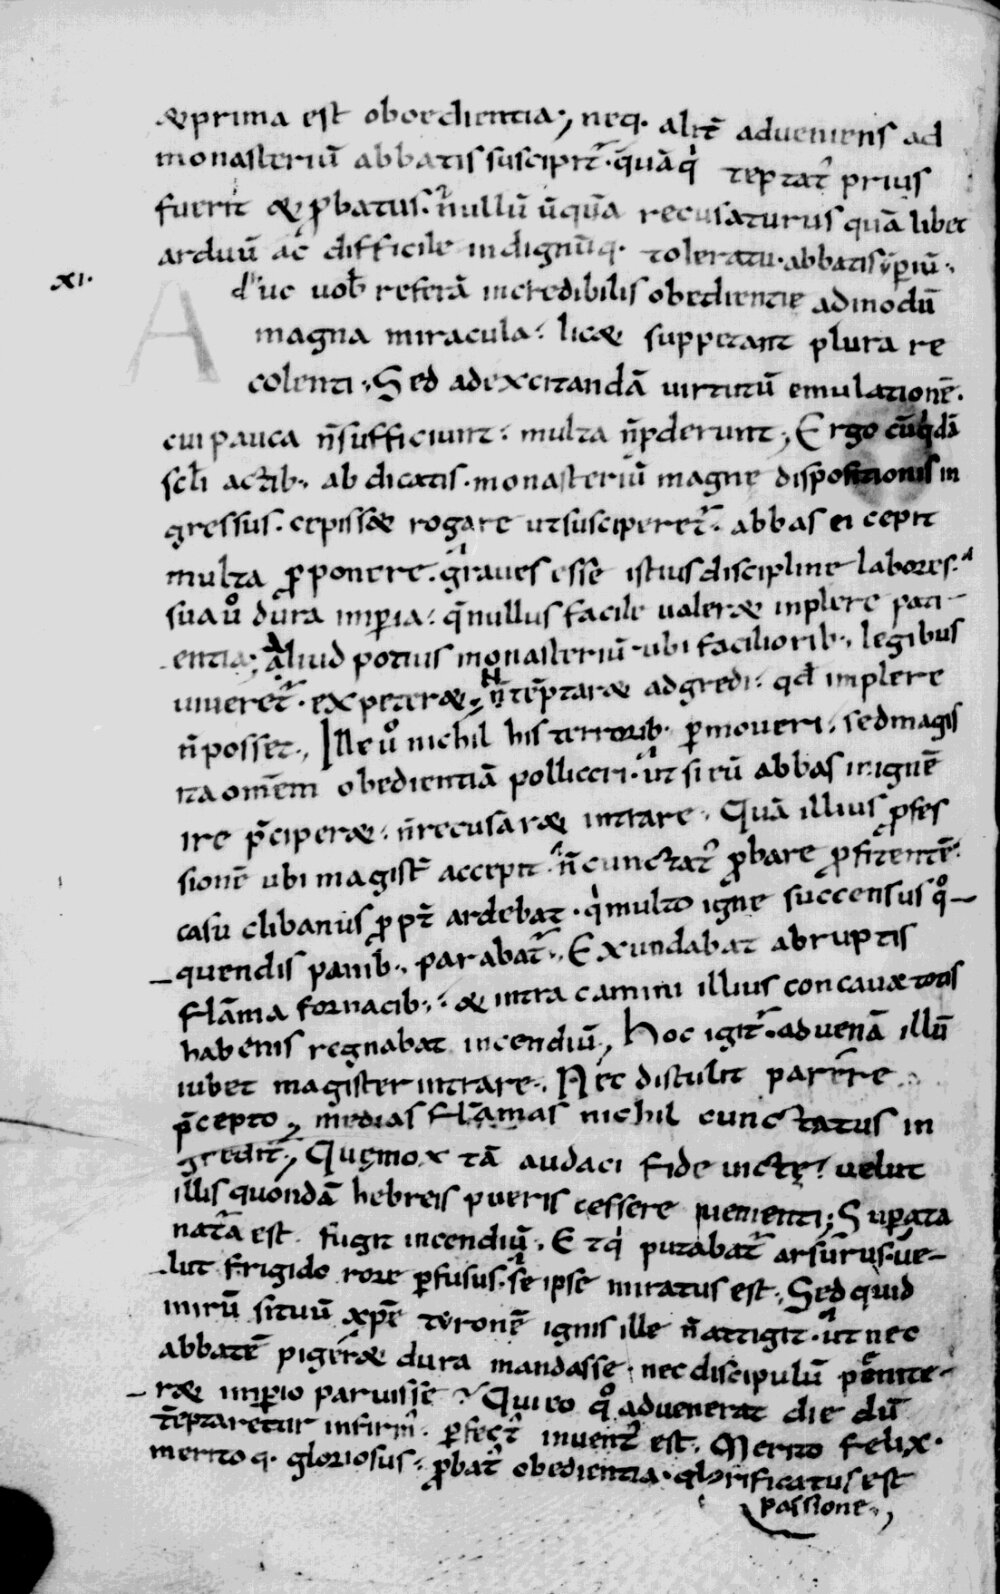 &prima est oboedientia; neq· alit̄ adveniens ad
monasteriū abbatis suscipit᷑· quā q̇ teptat᷑ prius
fuerit & ꝓbatus· n̄ nullū ūquā recusaturus quā libet
arduū ac difficile indignūq· toleratu· abbatis īperiū·,
xi·
A duc vob̄ referā incredibilis obedientie admodū
magna miracula· lic& suppetant plura re
colenti·, Sed ad excitandā virtutū emulationē·
cui pauca n̄ sufficiunt· multa n̄ ꝓderunt; Ergo cū q̇dā
scl̄i actib·, abdicatis· monasteriū magne dispositionis in
gressus· cepiss& rogare ut susciperet᷑· abbas ei cepit
multa ꝓponere· graves esse istius discipline labores·
sua ūo dura imꝑia· q̄ nullus facile valer& inplere pati-
entia; Aliud potius monasteriū· ubi faciliorib·, legibus
viveret᷑· expeter&· n̄ tēptar& adgredi· qd̄ implere
n̄ posset·, Ille ūo nichil his terrorib· ꝑmoveri· sed magis
ita om̄em obedientiā polliceri· ut si eū abbas in ignē
ire p̄ciper&· n̄ recusar& intrare· Quā illius ꝓfes
sionē ubi magist̄ accepit· n̄ cunctat᷑ ꝓbare ꝓfitentē·
casu clibanus ꝓpt̄ ardebat· q̇ multo igne succensus qo-
quendis panib·, parabat᷑·, Exundabat abruptis
flāma fornacib·, & intra camini illius concava totis
habenis regnabat incendiū, Hoc igit᷑· advenā illū
iubet magister intrare·, Nec distulit parere
p̄cepto; medias flāmas nichil cunctatus in
gredit᷑; Quę mox tā audaci fide victę· velut
illis quondā hebreis pueris cessere venienti; Suꝑata
natura est· fugit incendiū· Et q̇ putabat᷑ arsurus· ve-
lut frigido rore ꝑfusus· se ipse miratus est·, Sed quid
mirū si tuū xp̄e tyronē ignis ille n̄ attigit· ut nec
abbatē piger& dura mandasse· nec discipulū penite-
r& imꝑio paruisse· Qui eo qo advenerat die dū
tēptaretur infirm᷑· ꝑfect᷑ invent᷑ est· Merito felix·
merito q· gloriosus· ꝓbat᷑ obedientia· glorificatus est
passione·,